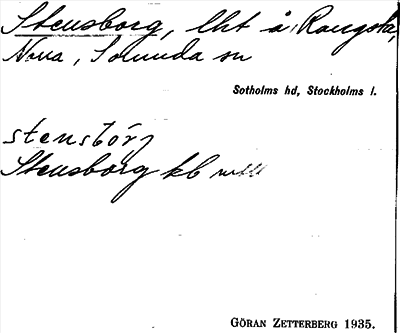 Stensborg, lht å Rangsta,
Nora, Sorunda sn
Sotholms hd, Stockholms l.
stensbórj
Stensborg kb
GÖRAN ZETTERBERG 1935.